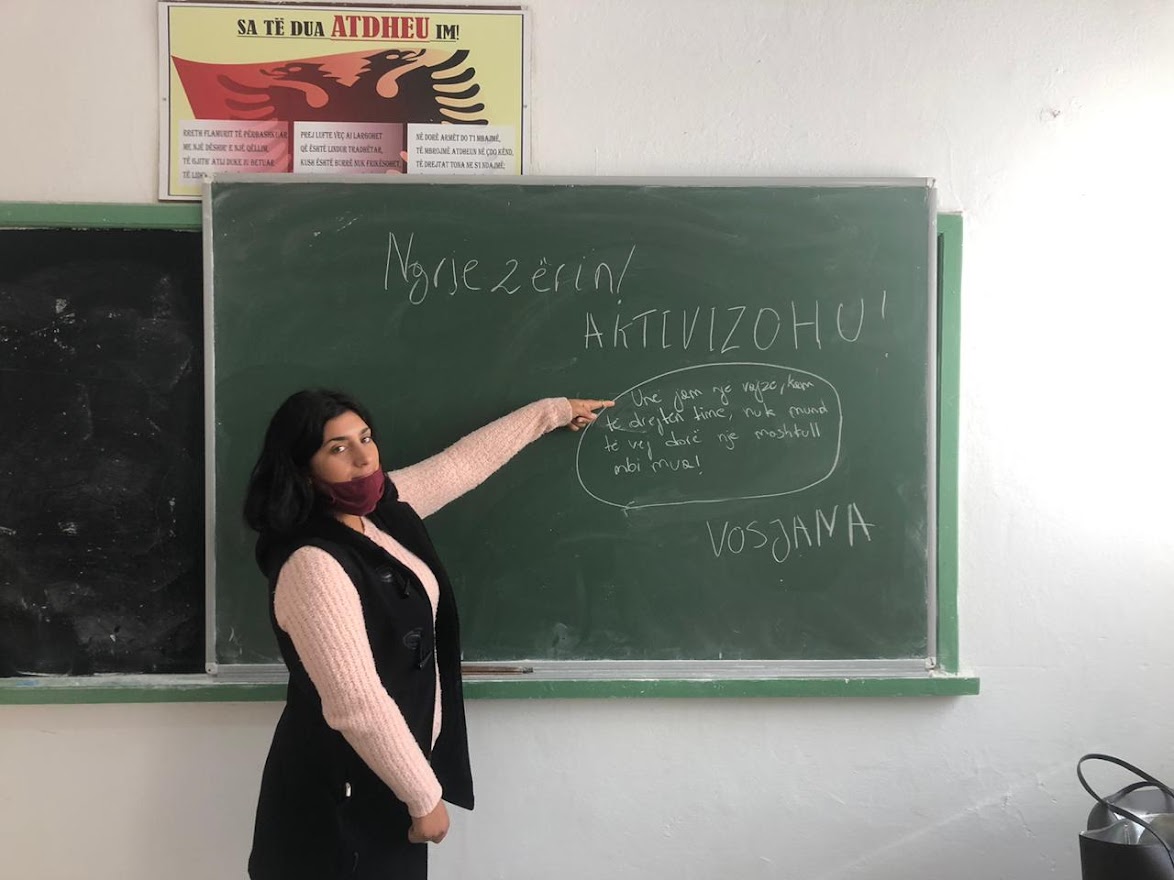 SA TË DUA ATDHEU IM!
RRETH FLAMURIT TË PËRBASHKUAR
ME NJË DËSHIR' E NJË QËLLIM,
TË GJITH' ATJ DUKE IU BETUAR
TË LIDH
PREJ LUFTE VEÇ AI LARGOHET
QË ËSHTË LINDUR TRADHËTAR,
KUSH ËSHTË BURRË NUK FRIKËSOHET
NË DORË ARMËT DO T'I MBAJMË,
TË MBROJMË ATDHEUN NË ÇDO KËND,
TË DREJTAT TONA NE S'I NDAJMË;
Ngrje zërin!
AKTIVIZOHU!
Unë jam një vajze, kam
të drejten time, nuk mund
të vej dorë një mashkull
mbi mua!
VOSJANA